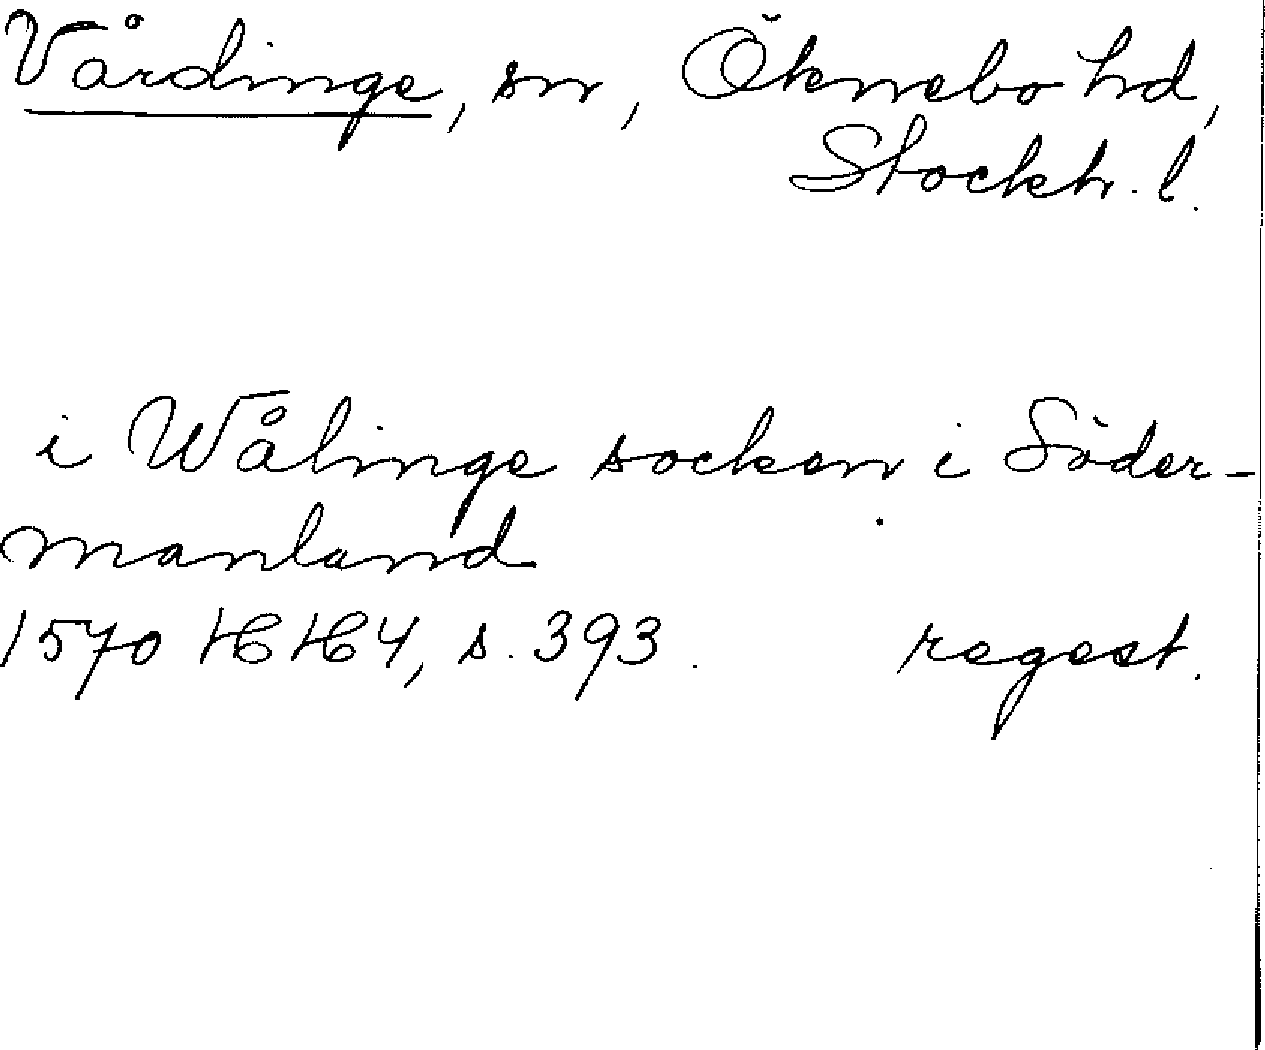 Vårdinge, sn, Öknebo hd,
Stockh. l.
i Wålinge socken i Söder-
manland
1570 HH 4, s. 393. regest.